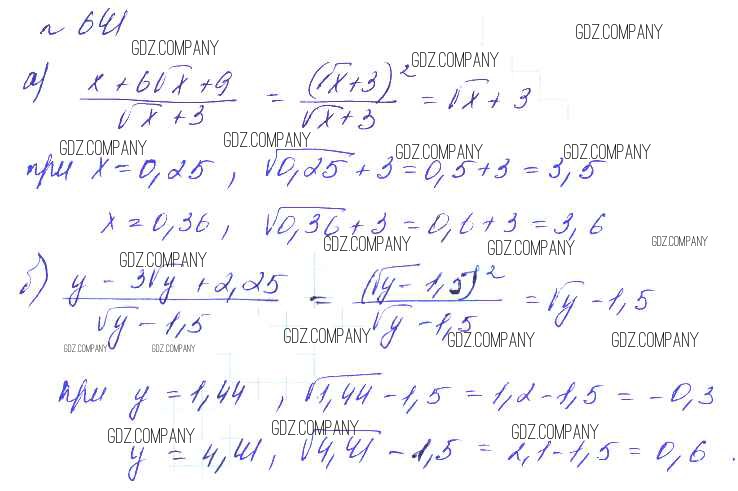 № 641
GDZ.COMPANY GDZ.COMPANY
а) (x + 6√x + 9)/(√x + 3) = (√x + 3)²/(√x + 3) = √x + 3
GDZ.COMPANY
GDZ.COMPANY GDZ.COMPANY GDZ.COMPANY GDZ.COMPANY
при x = 0,25, √0,25 + 3 = 0,5 + 3 = 3,5
x = 0,36, √0,36 + 3 = 0,6 + 3 = 3,6
GDZ.COMPANY GDZ.COMPANY GDZ.COMPANY GDZ.COMPANY
б) (y - 3√y + 2,25)/(√y - 1,5) = (√y - 1,5)²/(√y - 1,5) = √y - 1,5
GDZ.COMPANY GDZ.COMPANY GDZ.COMPANY
GDZ.COMPANY GDZ.COMPANY
при y = 1,44, √1,44 - 1,5 = 1,2 - 1,5 = -0,3
GDZ.COMPANY GDZ.COMPANY GDZ.COMPANY
y = 4,41, √4,41 - 1,5 = 2,1 - 1,5 = 0,6.